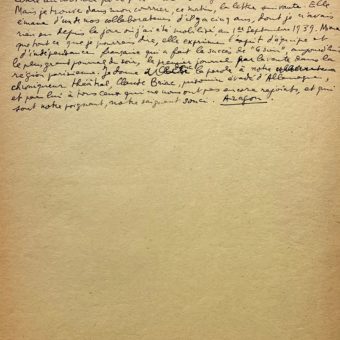 Mais je trouve dans mon courrier, ce matin, la lettre suivante. Elle
émane d'un de nos collaborateurs d'il y a cinq ans, dont je n'avais
rien su depuis le jour où j'ai été mobilisé au 1er Septembre 1939. Mieux
que tout ce que je pourrais dire, elle exprime l'esprit d'équipe et
d'indépendance française qui a fait le succès de "Ce soir", aujourd'hui
le plus grand journal du soir, le premier journal par la vente dans la
région parisienne. Je donne la parole à notre
chroniqueur théâtral, Claude Briac, prisonnier évadé d'Allemagne,
et par lui à tous ceux qui ne nous ont pas encore rejoints, et qui
sont notre poignant, notre saignant souci. Aragon.